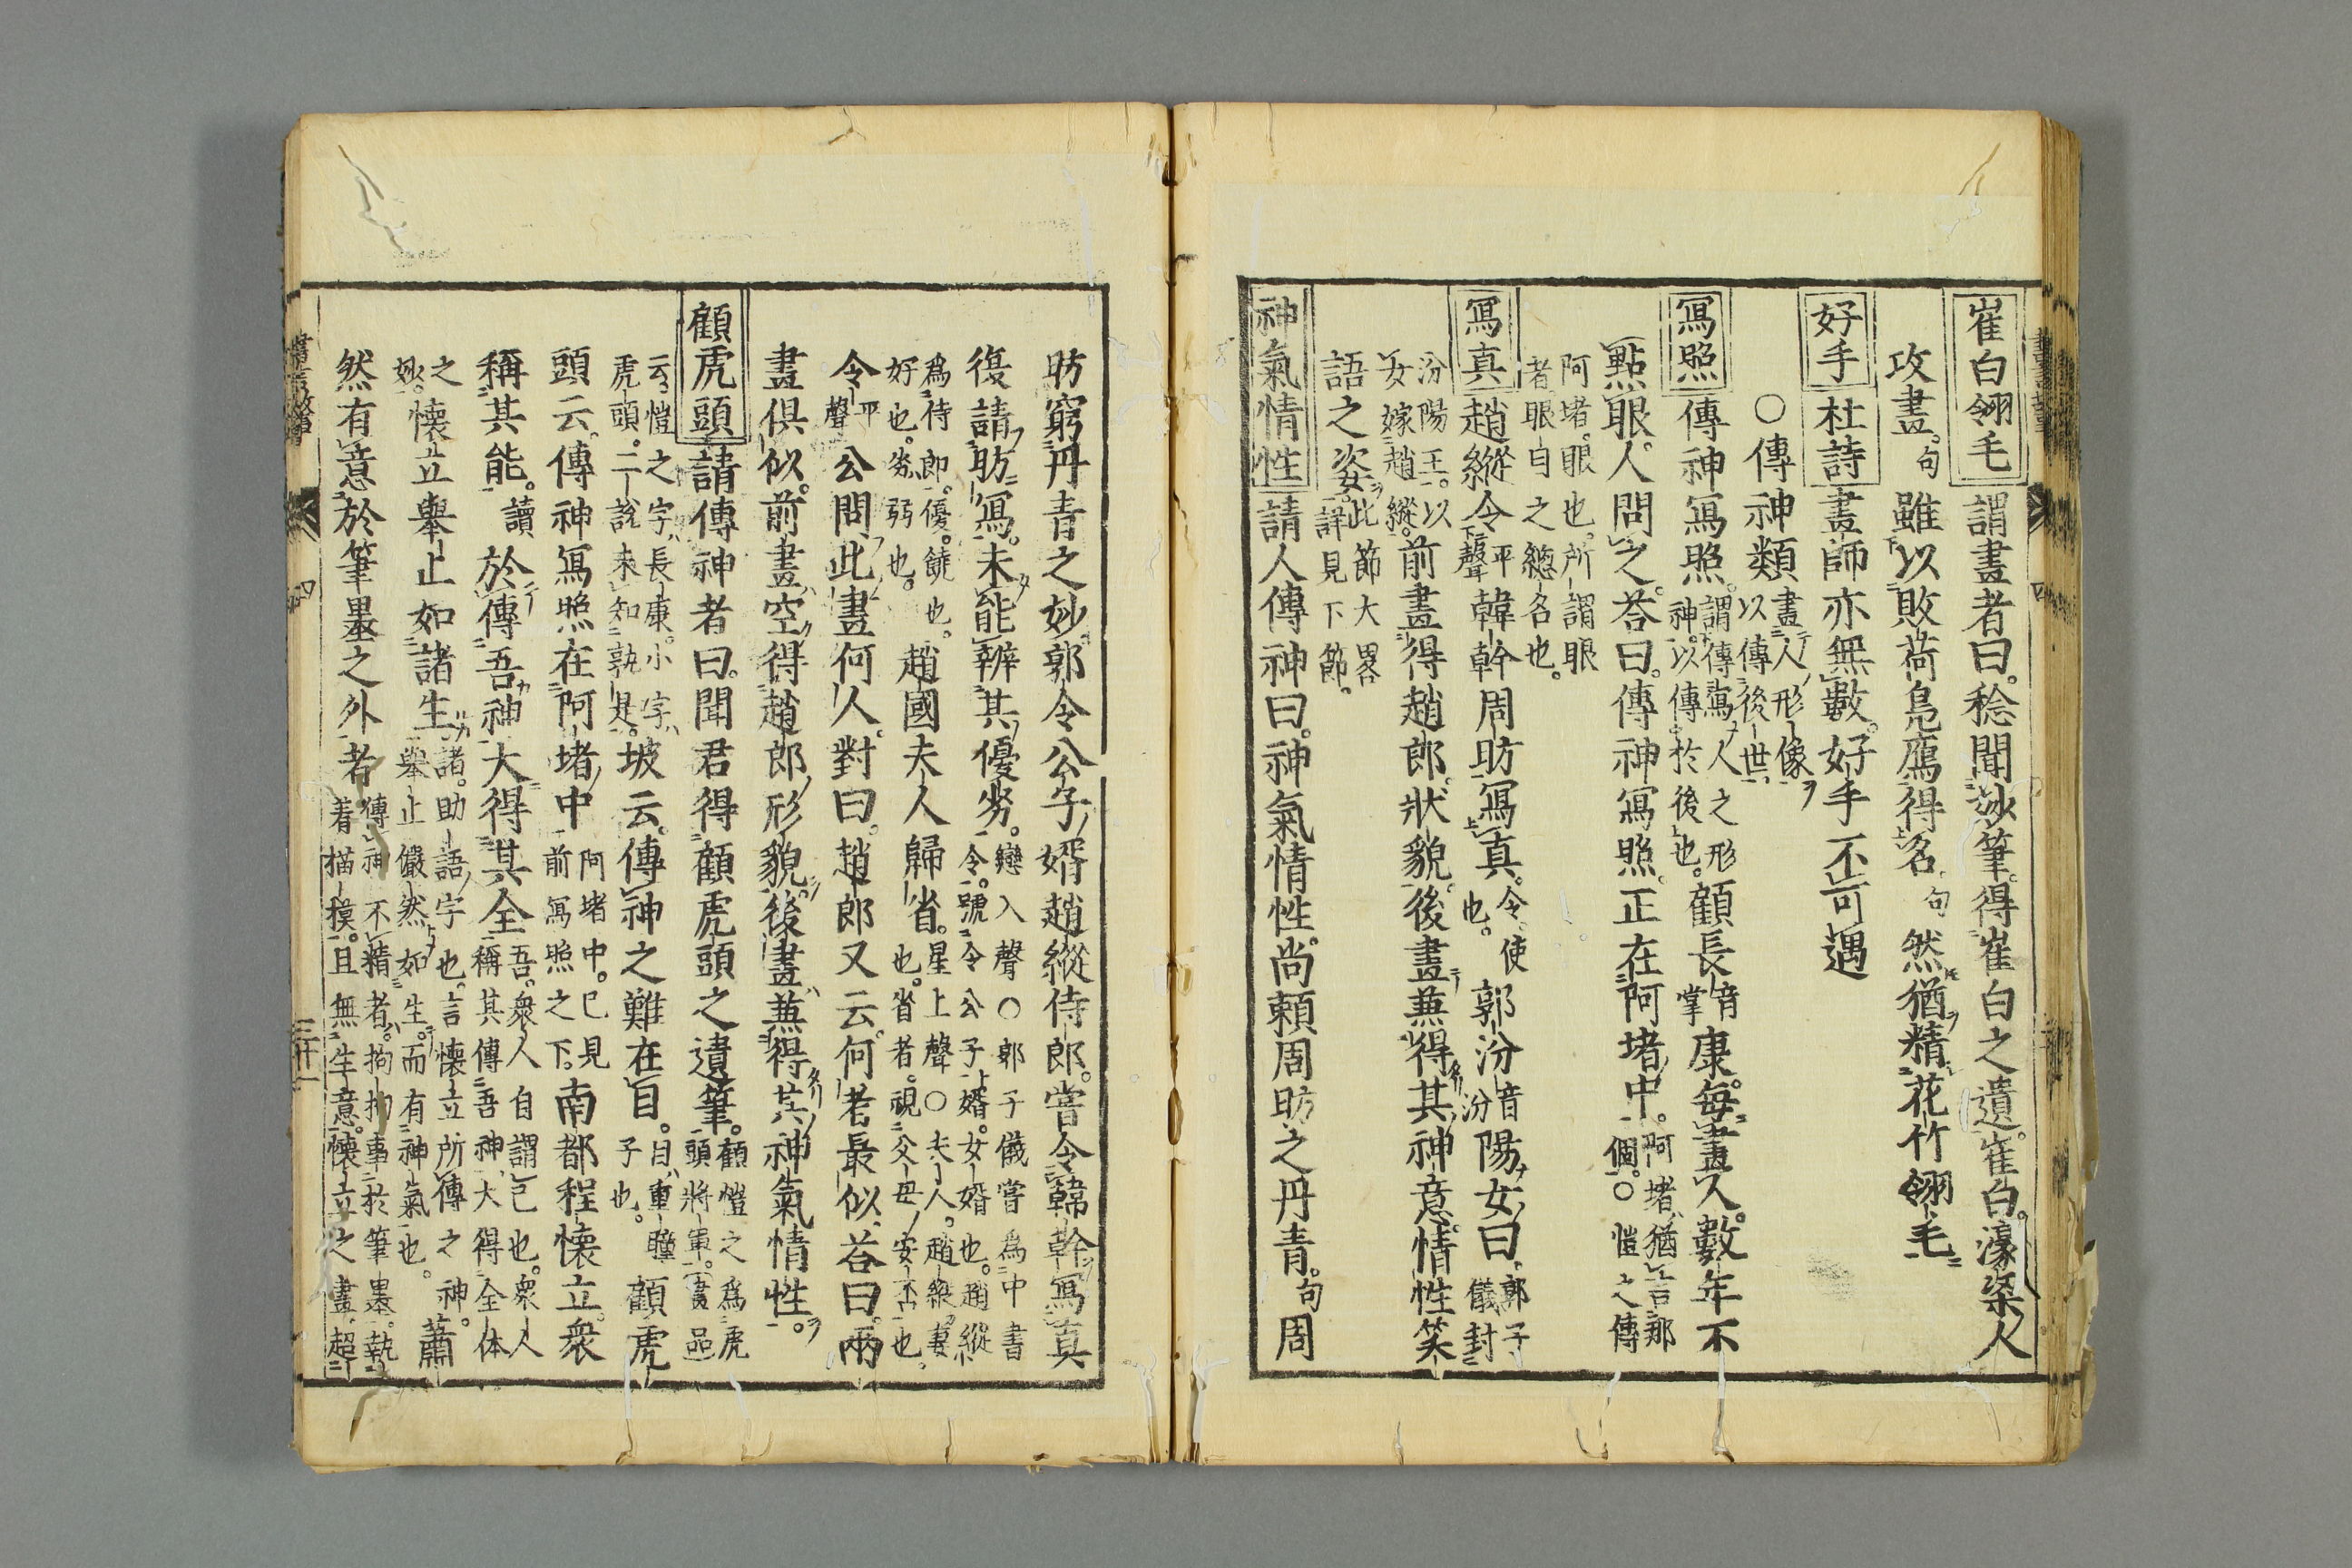 崔白翎毛 謂畫者曰。稔聞妙筆。得崔白之遺。崔白。濠梁人
攻畫。句 雖以敗荷鳧鴈得名。句 然猶精花竹翎毛
好手 杜詩 畫師亦無數。好手不可遇
○傳神類 畫人形像以傳後世。
寫照 傳神寫照。謂傳寫人之形神。以傳於後也。顧長音掌康。每畫人。數年不
點眼。人問之。荅曰。傳神寫照。正在阿堵中。阿堵。猶言那個。○愷之傳
阿堵。眼也。所謂眼者眼目之總名也。
寫真 趙縱令平聲韓幹周昉寫真。令。使也。 郭汾音汾陽女曰。郭子儀封
汾陽王。以女嫁趙縱。前畫得趙郎。狀貌。後畫兼得其神意。情性笑
語之姿。此節大畧詳見下節。
神氣情性 請人傳神曰。神氣情性。尚賴周昉之丹青。句周
昉窮丹青之妙。郭令公子婿趙縱侍郎。嘗令韓幹寫真
復請昉寫。未能辨其優劣。令。號令公子婿。女婿也。趙縱
爲侍郎。優。饒也。劣。弱也。趙國夫人歸省。星上聲○夫人。趙縱妻也。省者。視父母安否也。
令平聲公問。此畫何人。對曰。趙郎又云。何者最似。荅曰。兩
畫俱似。前畫。空得趙郎形貌。後畫。兼得其神氣情性。
顧虎頭 請傳神者曰。聞君得顧虎頭之遺筆。顧愷之爲虎頭將軍。
云愷之字。長康。小字。虎頭。二說未知孰是。坡云。傳神之難在目。目。重瞳子也。顧虎
頭云。傳神寫照在阿堵中 阿堵中。已見前寫照之下。南都程懷立。衆
稱其能。讀 於傳吾神大得其全 吾。衆人自謂己也。衆人稱其傳吾神。大得全体
之妙。懷立舉止如諸生。諸。助語字也。言懷立所傳之神。舉止儼然如生。而有神氣也。蕭
然有意於筆墨之外者 傳神不精者。拘拘事於筆墨。執着描摸。且無生意。懷立之畫。超